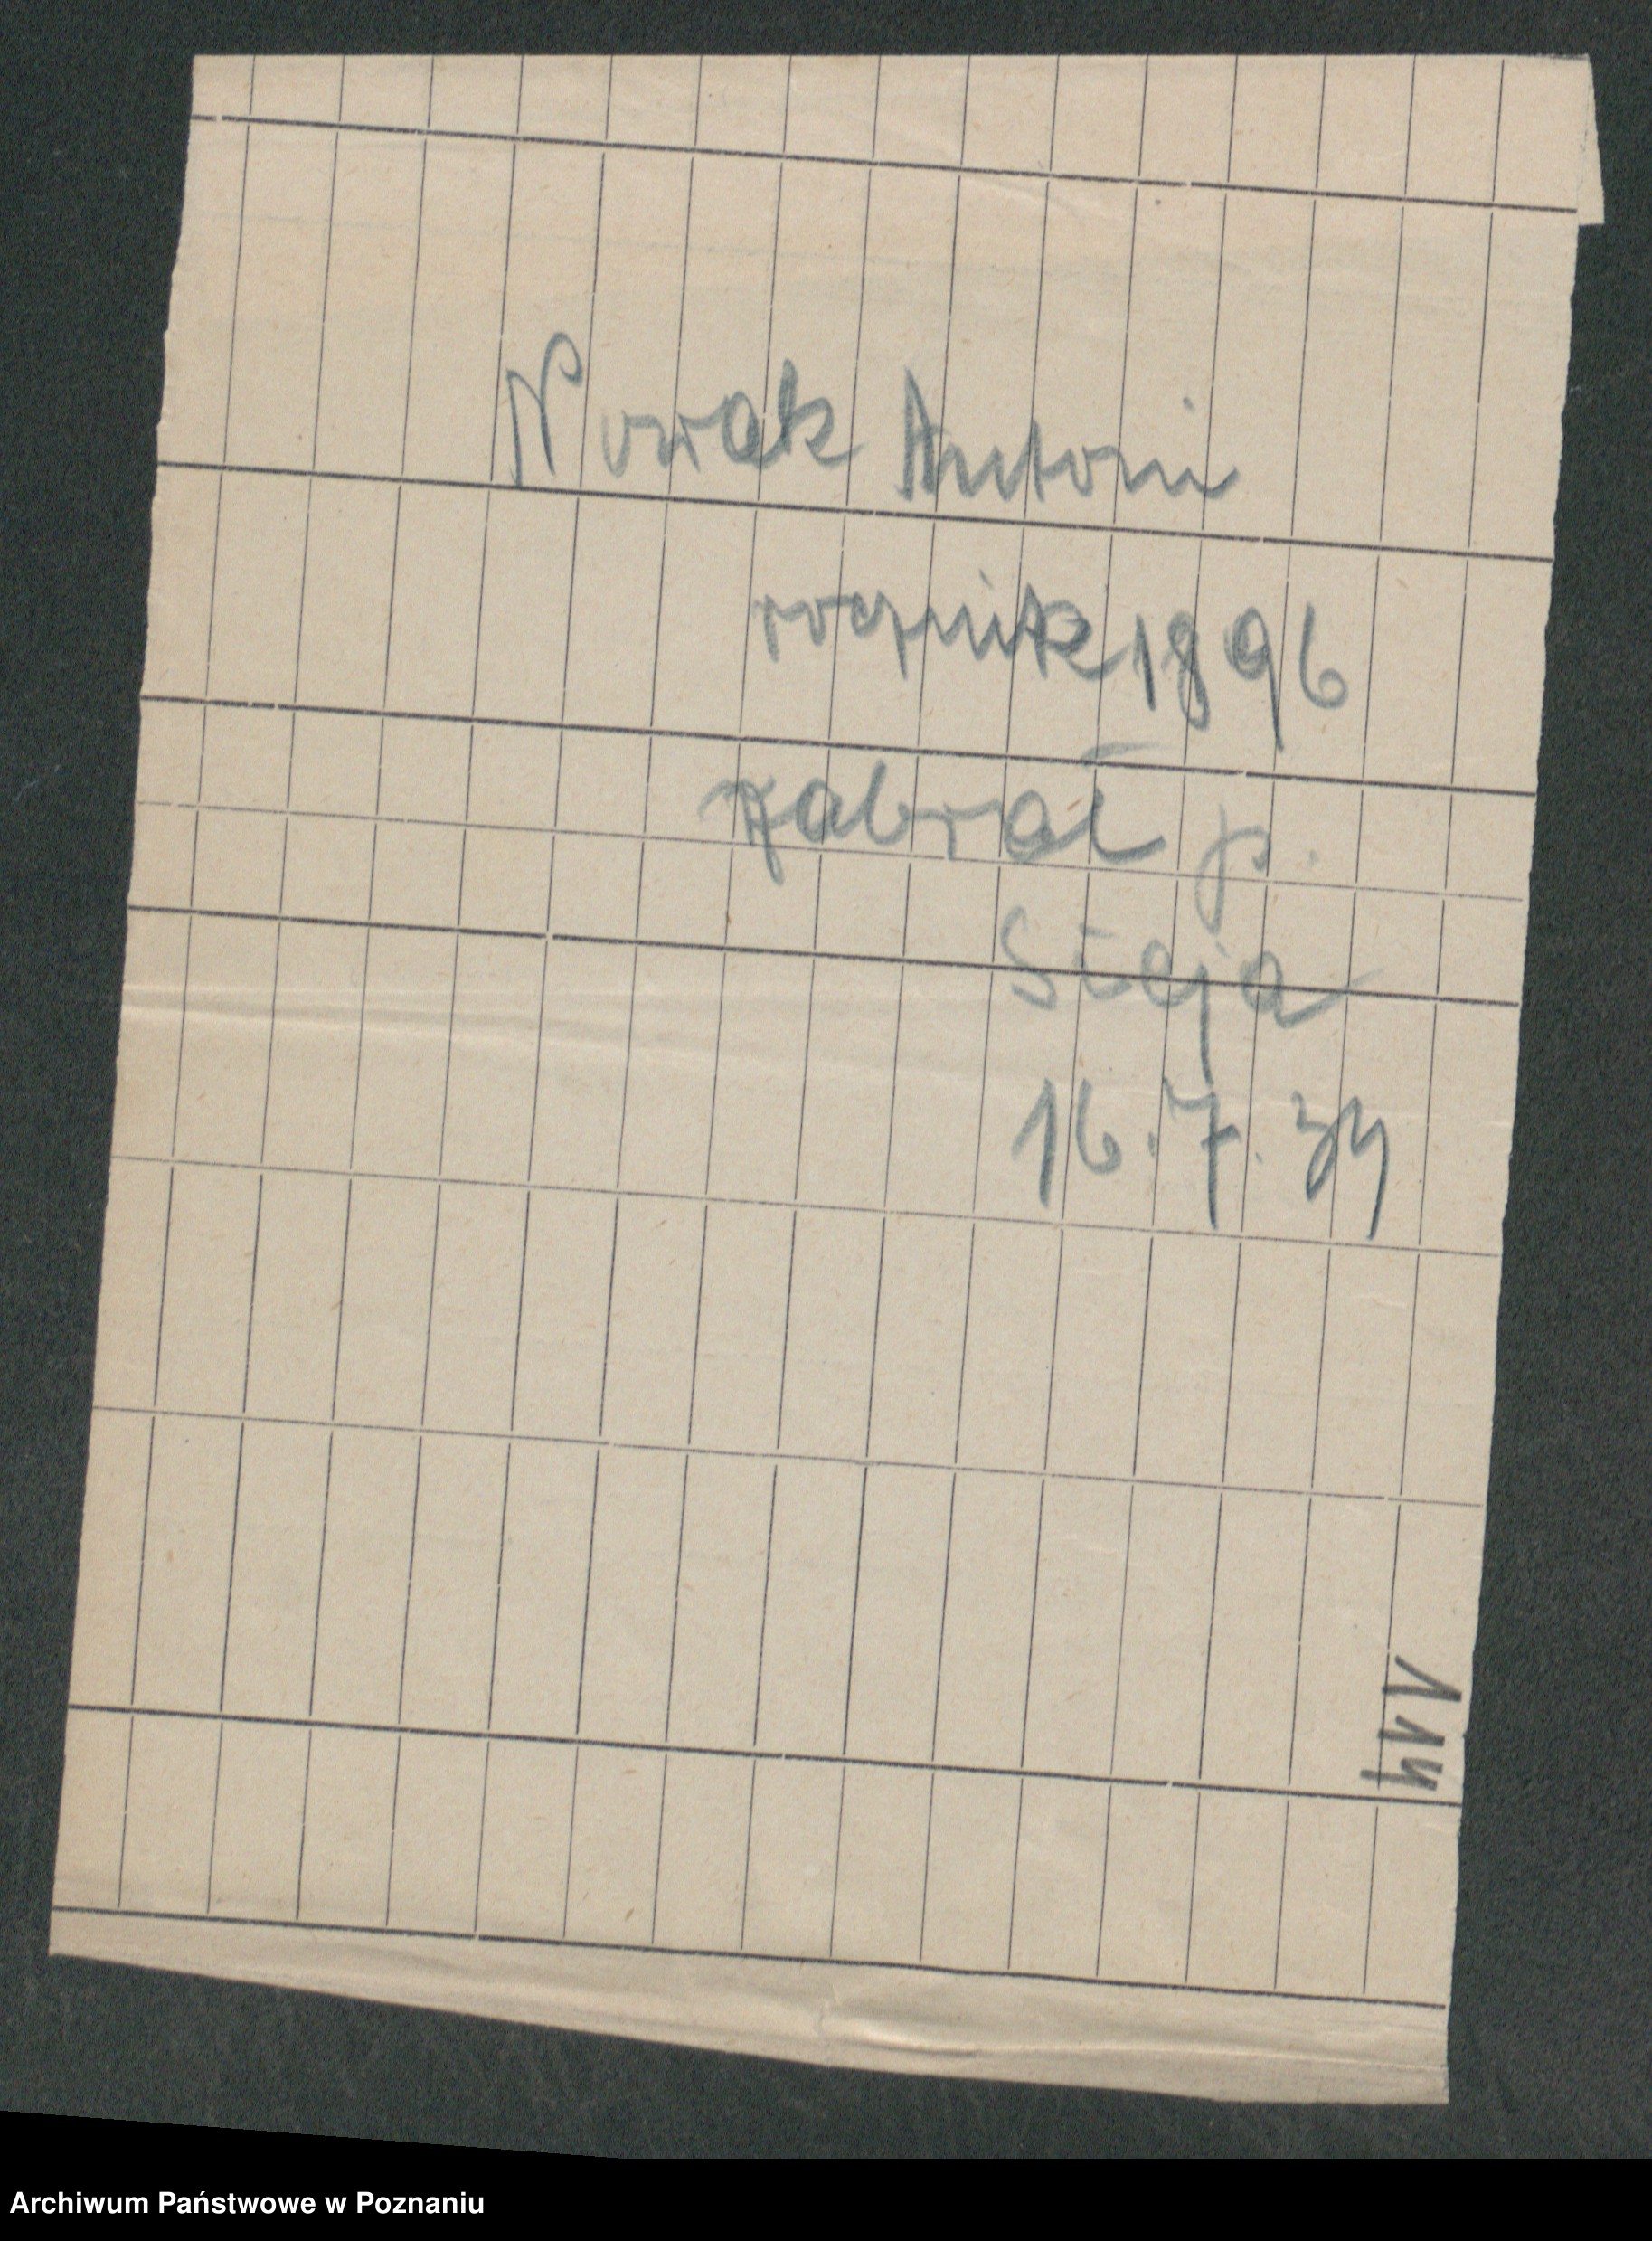 Nowak Antoni
rocznik 1896
zabrał p.
Sieja
16.7.34
114
Archiwum Państwowe w Poznaniu